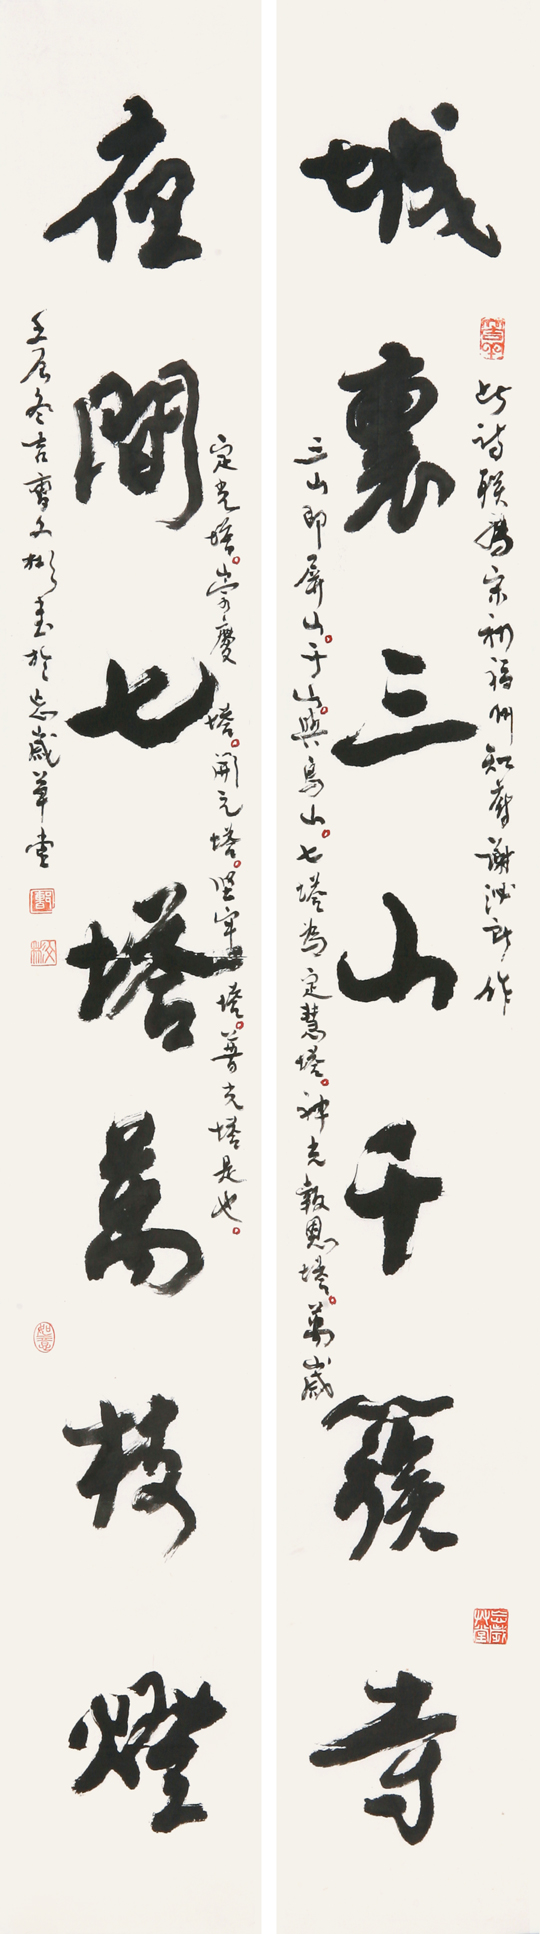 城裏三山千簇寺
此詩联為宋初福州知府謝泌所作
三山即屏山。于山。與烏山。七塔為定慧塔。神光報恩塔。萬歲
夜間七塔萬枝燈
定光塔。崇慶塔。開元塔。坚牢塔。普光塔是也。
壬辰冬吉曹文彬書於忘歲草堂
曹
文彬
如意
忘歲草堂